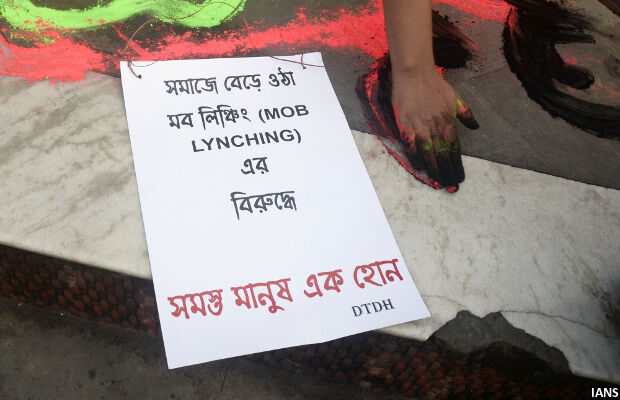 সমাজে বেড়ে ওঠা
মব লিঞ্চিং (MOB
LYNCHING)
এর
বিরুদ্ধে
সমস্ত মানুষ এক হোন
DTDH
IANS